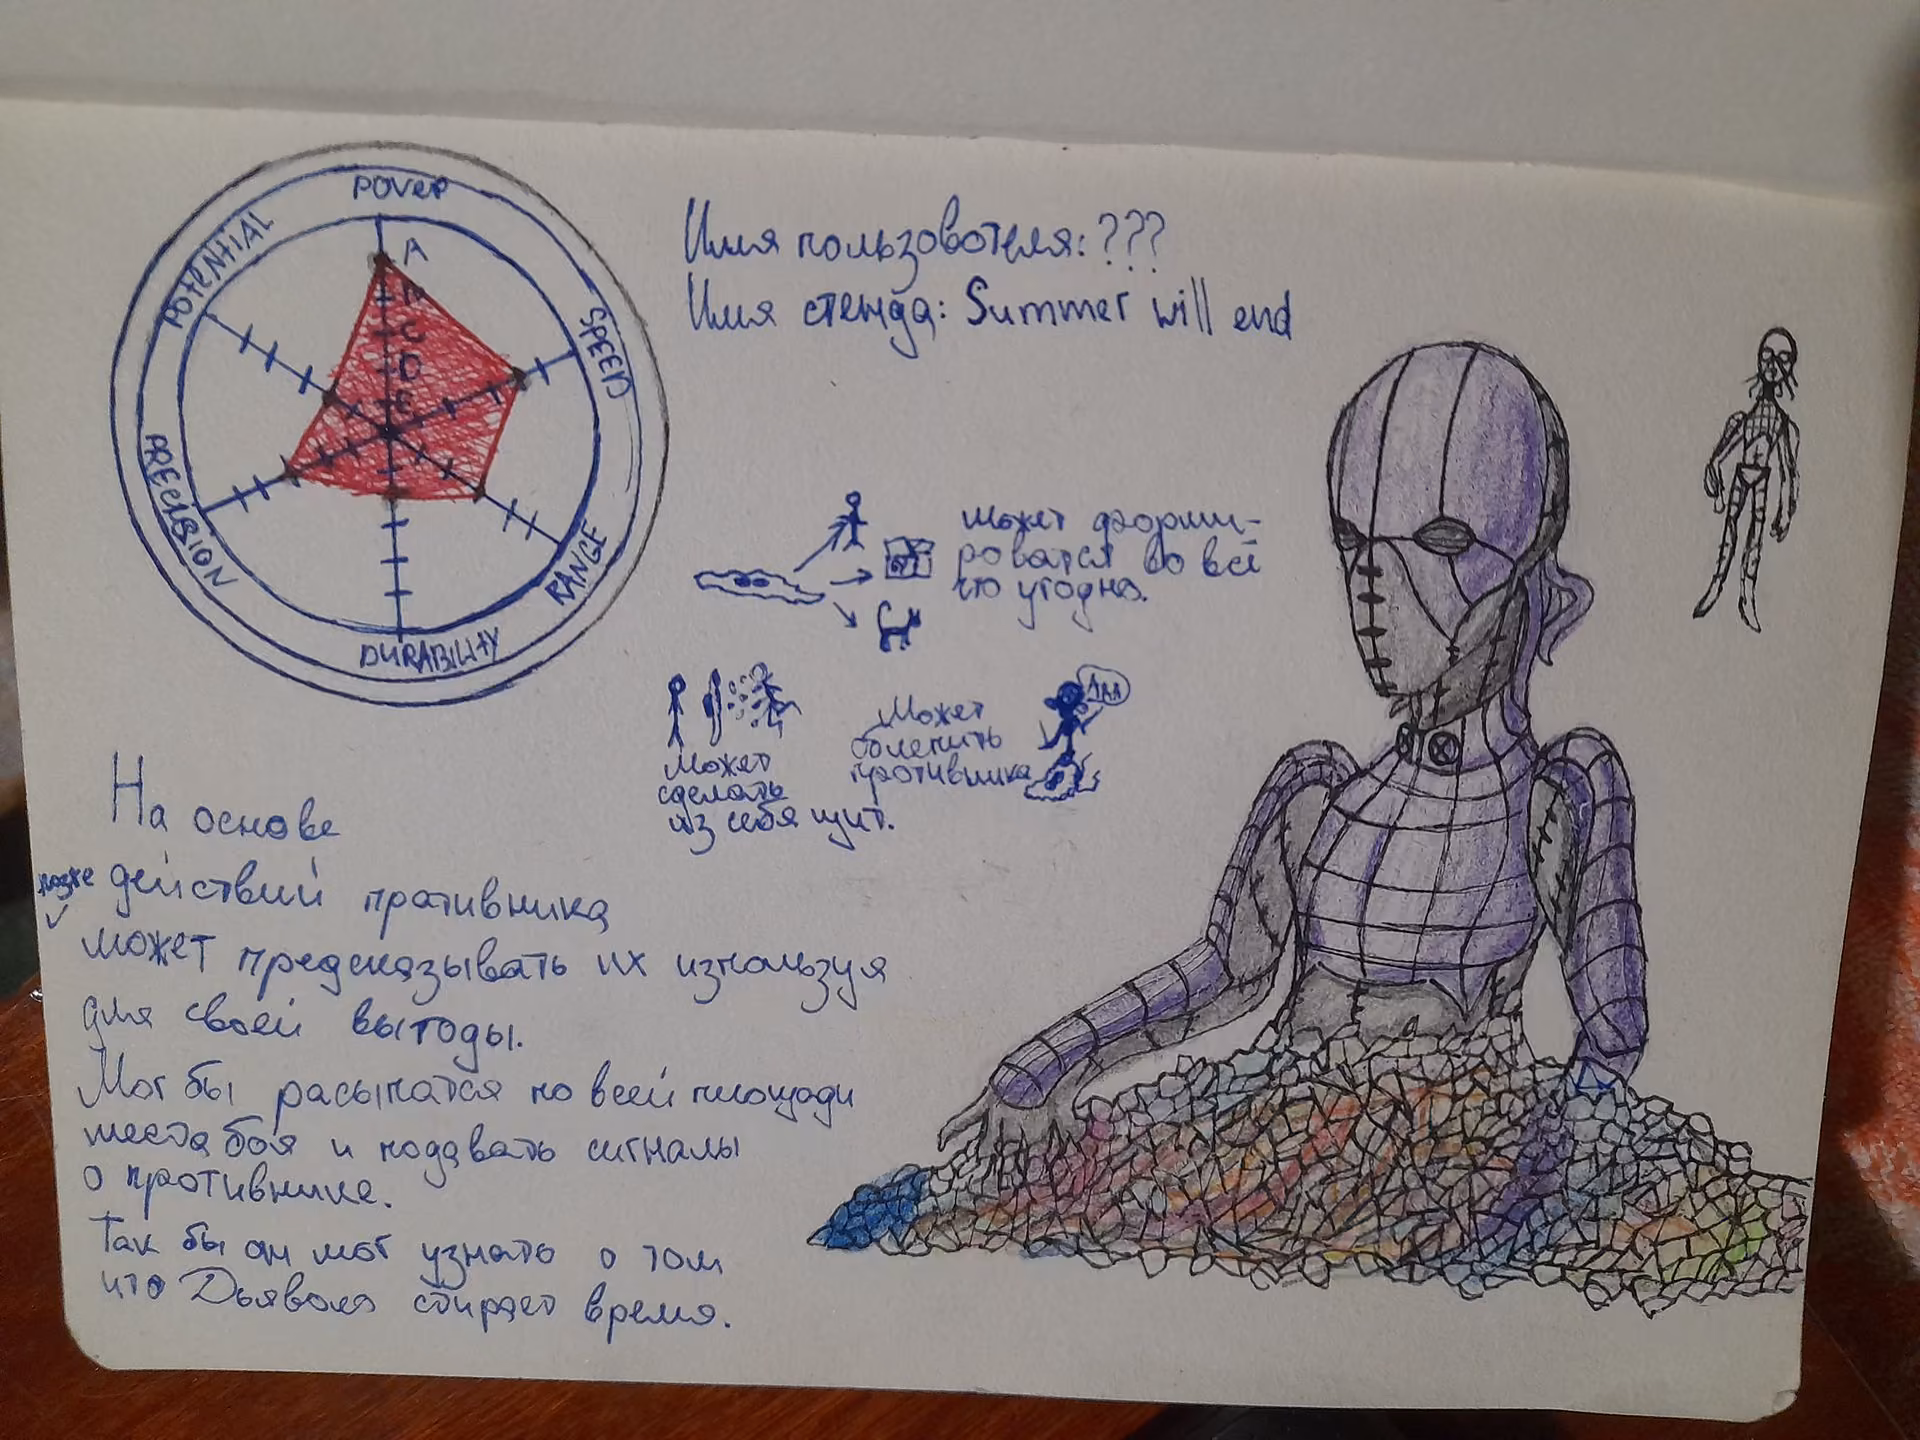 POVER
A
B
C
D
E
SPEED
RANGE
DURABILITY
PRECISION
POTENTIAL
Имя пользовотеля: ???
Имя стенда: Summer will end
может форми-
роватся во всё
что угодно.
Может
сделать
из себя щит.
Может
облепить
противника
AAA
На основе
позже действий пративника
может предсказывать их используя
для своей выгоды.
Мог бы расыпатся по всей площади
места боя и подавать сигналы
о противнике.
Так бы он мог узнать о том
что Дьяволо стирает время.